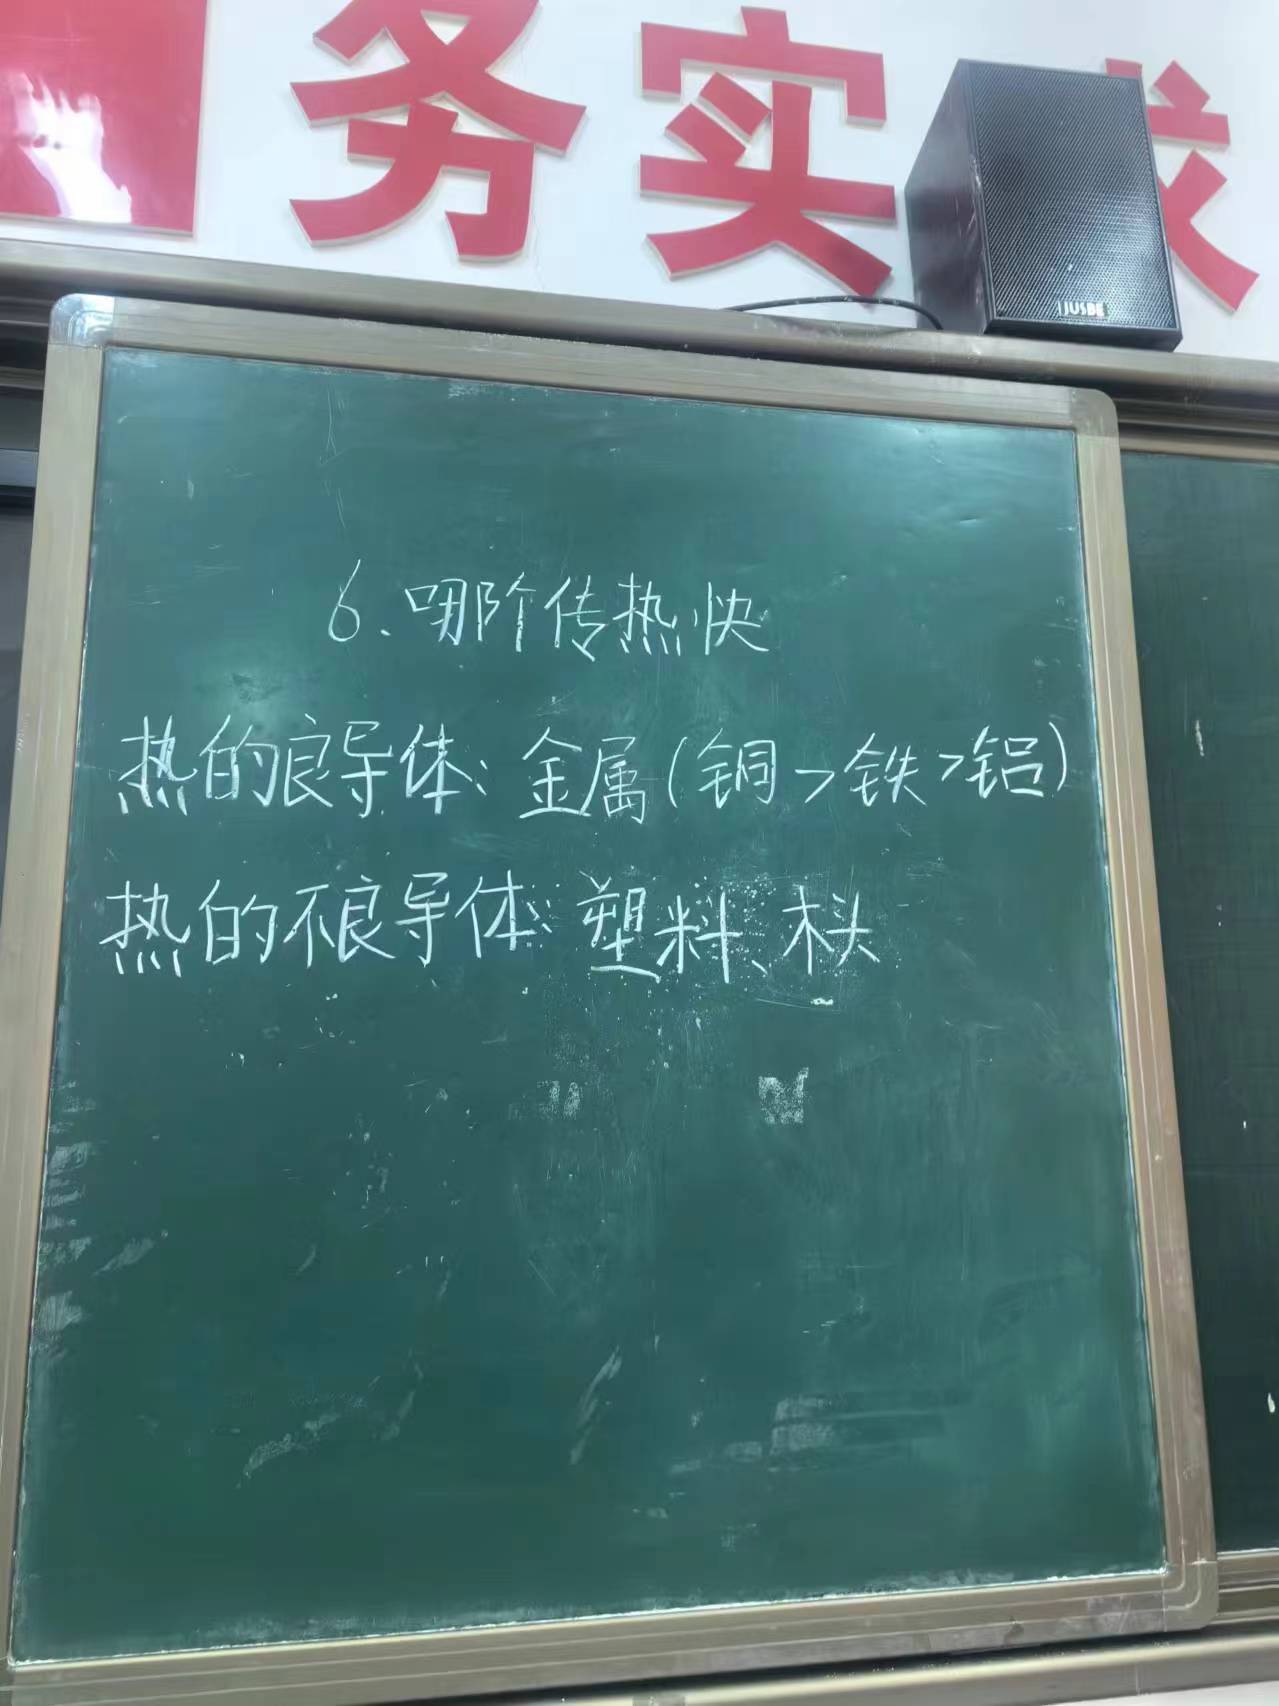 务实求
JUSBE
6.哪阶传热快
热的良导体:金属(铜>铁>铝)
热的不良导体:塑料、木头